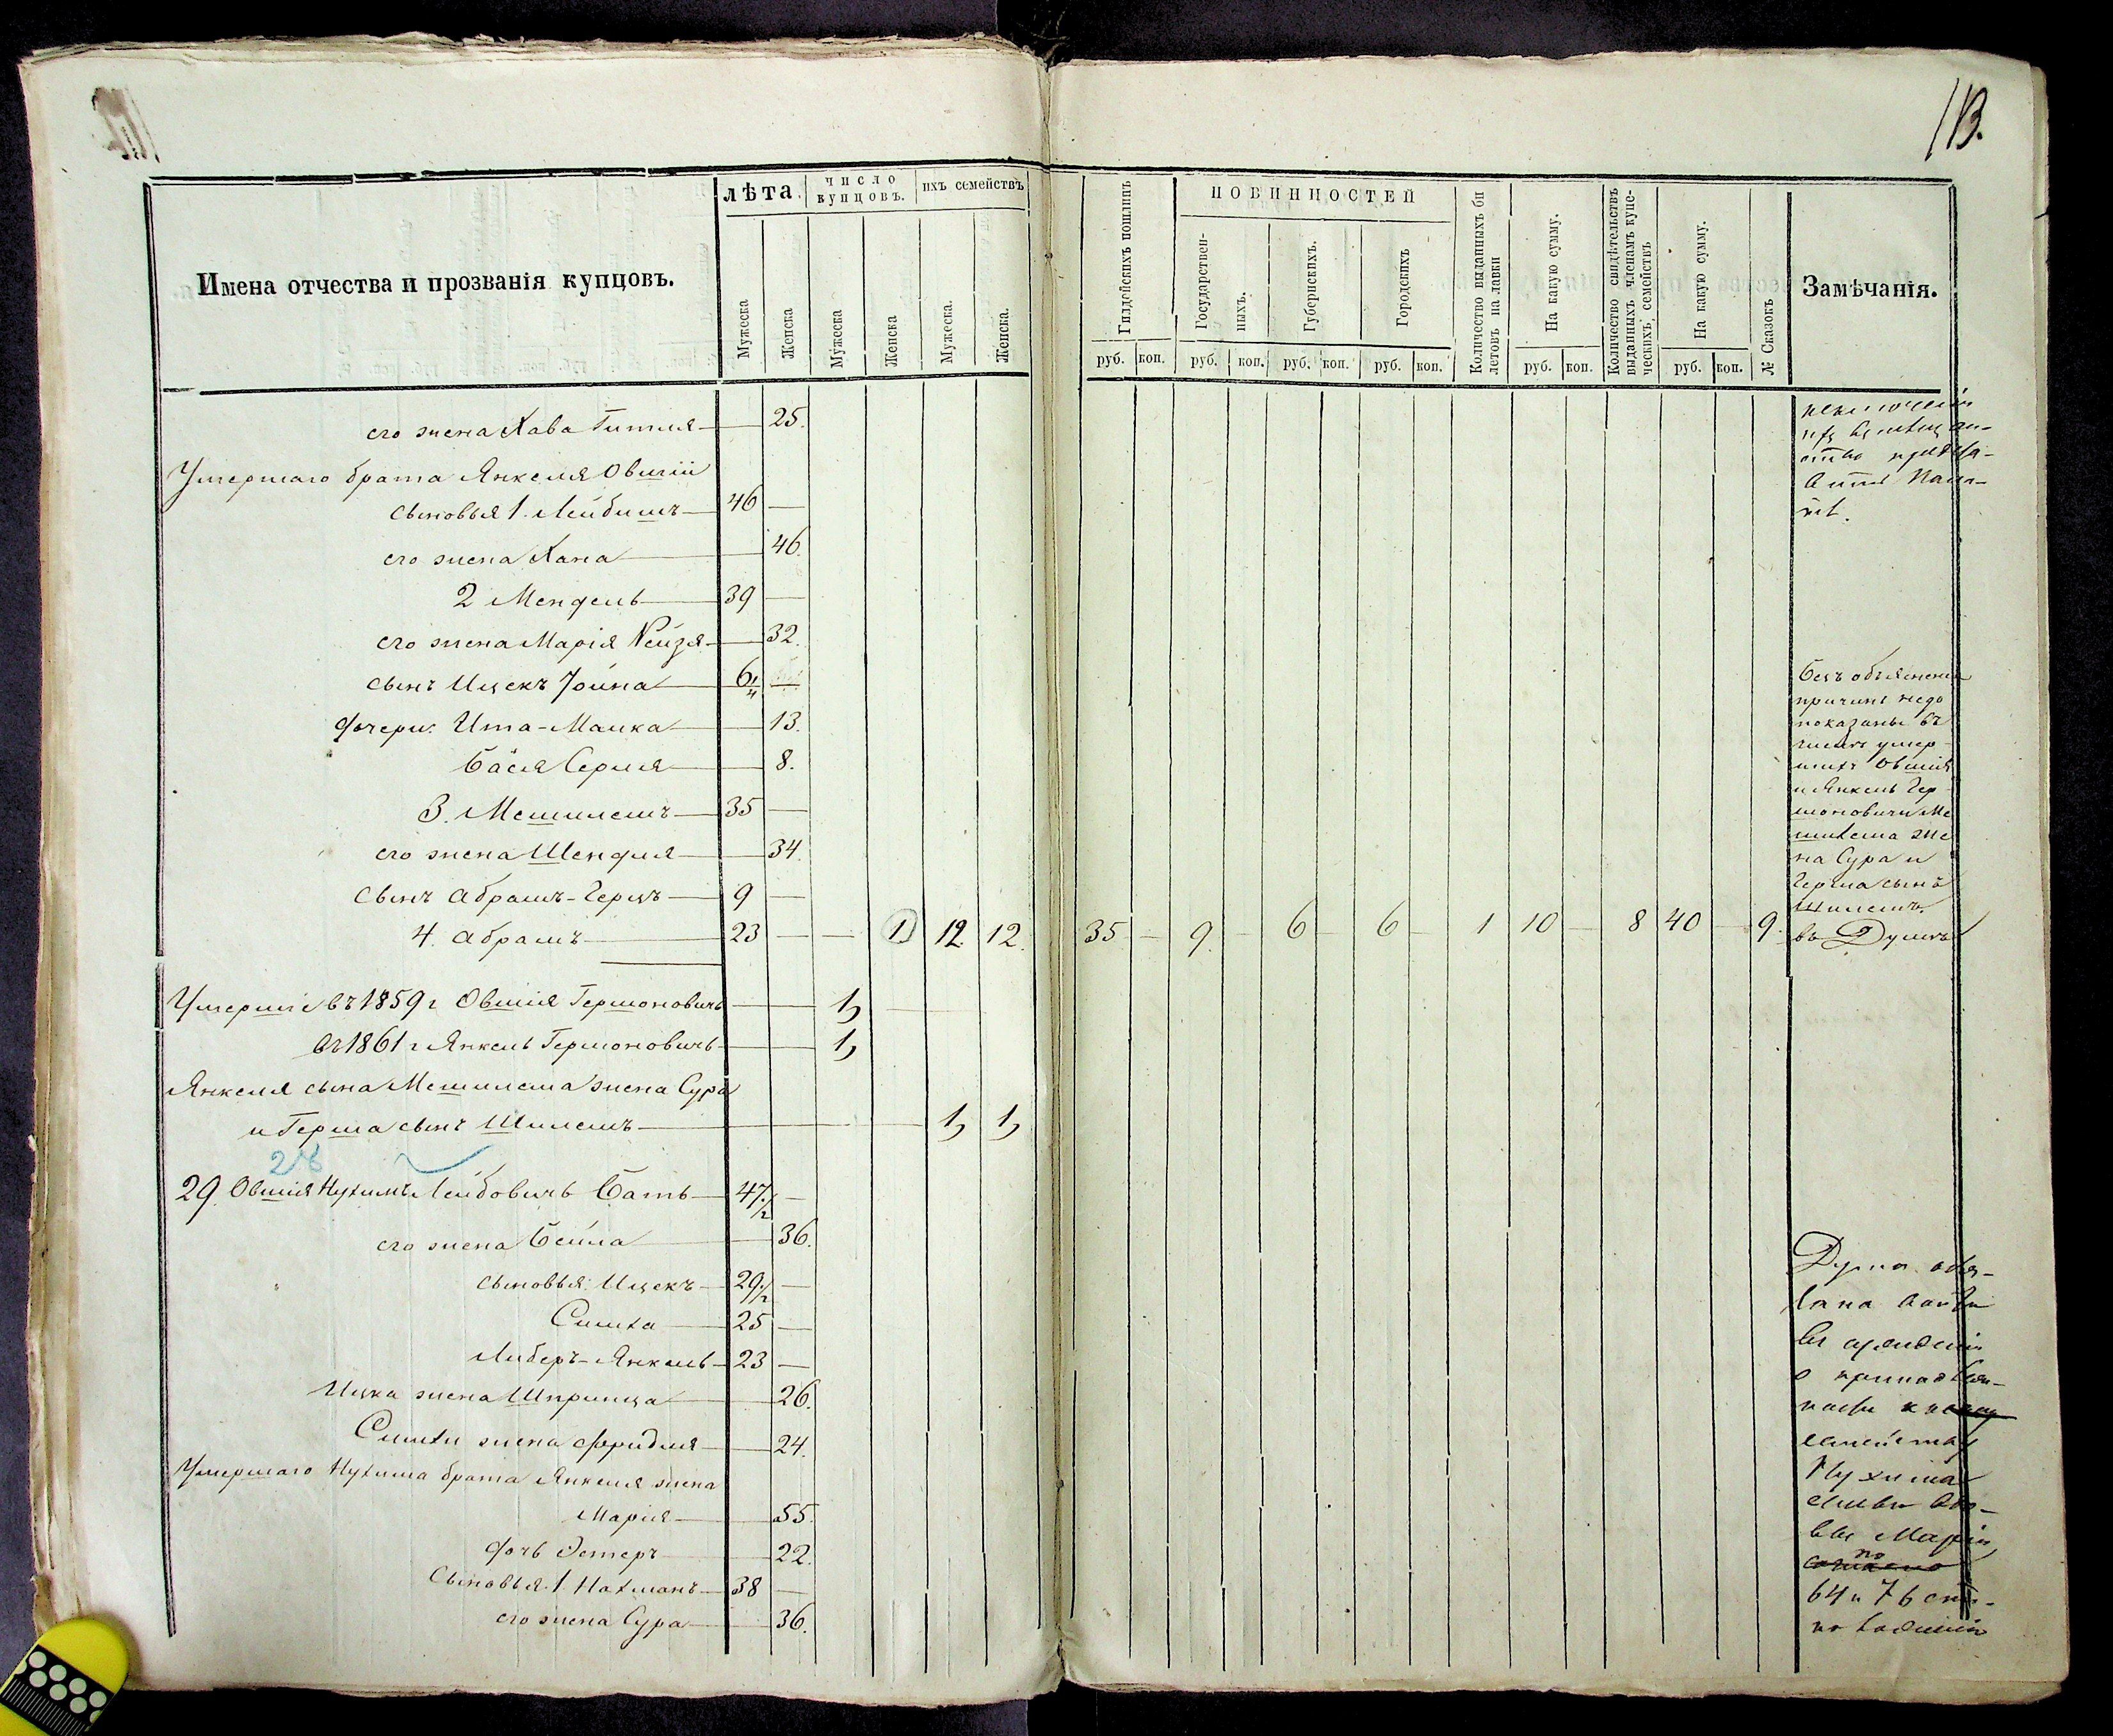 113.
Имена отчества и прозванія купцовъ.
лѣта.
число купцовъ.
ихъ семействъ
Мужеска
Женска
Мужеска
Женска
Мужеска.
Женска.
Гилдейскихъ пошлинъ
ПОВИННОСТЕЙ
Государствен-
ныхъ.
Губернскихъ.
Городскихъ
Количество выданныхъ би
летовъ на лавки
На какую сумму.
Количество свидѣтельствъ
выданныхъ членамъ купе-
ческихъ, семействъ
На какую сумму.
№ Сказокъ
Замѣчанія.
руб. коп. руб. коп. руб. коп. руб. коп. руб. коп. руб. коп.
его жена Хава Гитля 25.
Умершаго брата Янкеля Овшіи
сыновья 1. Лейбишъ 46
его жена Хана 46.
2 Мендель 39
его жена Марія Рейзя 32.
сынъ Ицекъ Іойна 6
дочери: Ита-Малка 13.
Бася Серля 8.
3. Мешилемъ 35
его жена Шендля 34.
сынъ Абрамъ-Герцъ 9
4. Абрамъ 23 1 12. 12. 35 9. 6 6 1 10 8 40 9.
Умершіе въ 1859 г. Овшія Гершоновичъ 1,
въ 1861 г Янкель Гершоновичъ 1,
Янкеля сына Мешилема жена Сура
и Герша сынъ Шилемъ 1, 1,
28
29. Овшія Нухимъ Лейбовичъ Батъ 47 1/2
его жена Бейла 36.
сыновья: Ицекъ 29 1/2
Симха 25
Либеръ-Янкель 23
Ицка жена Шпринца 26.
Симхи жена Фридля 24.
Умершаго Нухима брата Янкеля жена
Марія 55.
дочь Эстеръ 22.
Сыновья 1. Нахманъ 38
его жена Сура 36.
Безъ объясненія
причинъ недо
показаны въ
числѣ умер-
шихъ Овшія
и Янкель Гер-
шоновичи Ме
шилема же
на Сура и
Герша сынъ
Шилемъ.
въ Думѣ
Дума обя-
зана войти
о принадлеж-
ности к
семейству
Нухима
Маріи
по
64 и 76